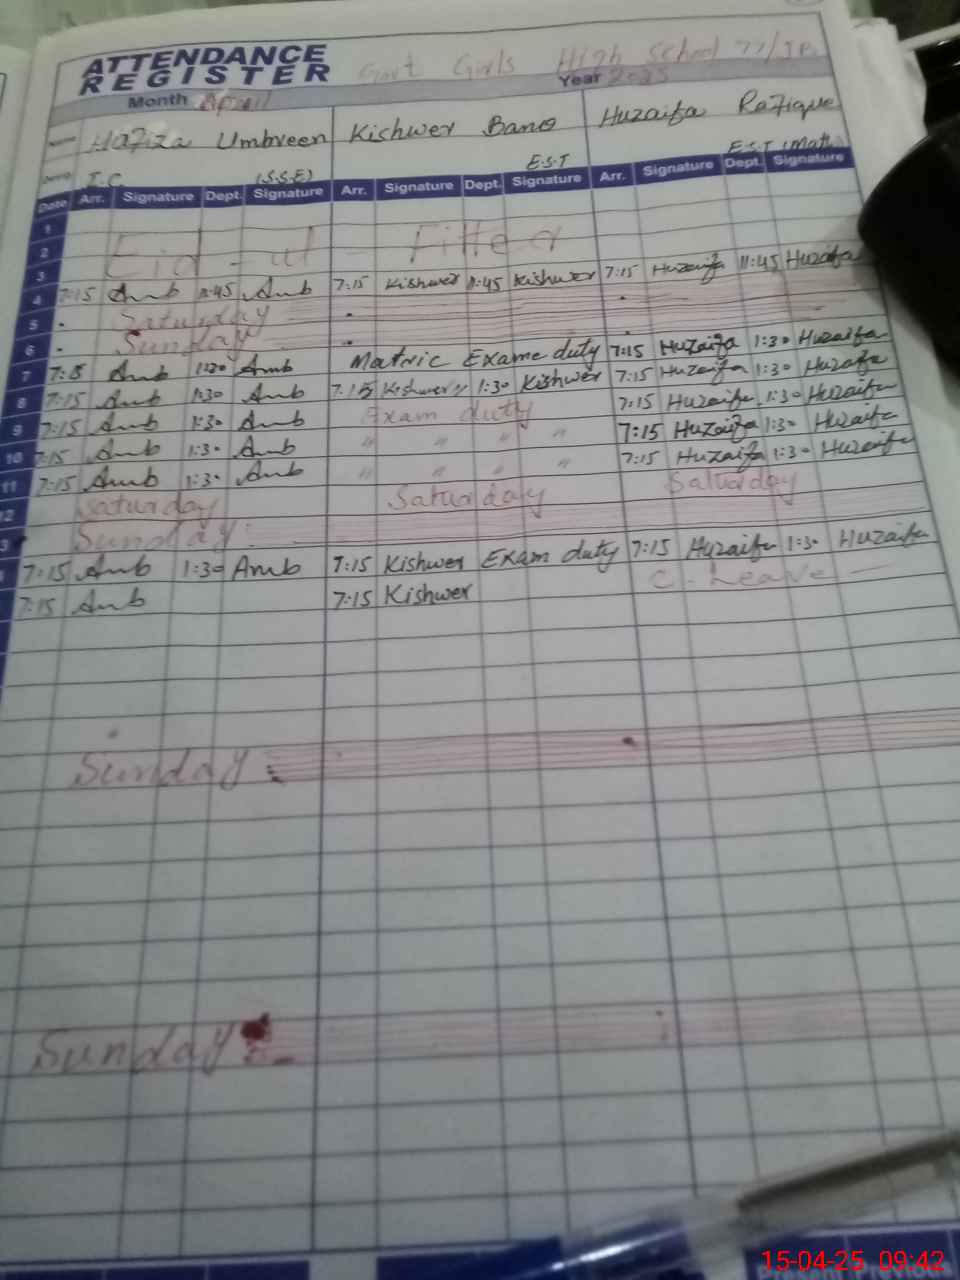 ATTENDANCE
REGISTER
Govt Girls High School 77/
Month April Year 2025
Name Hafiza Umbreen Kishwer Bano Huzaifa Rafique
Desig. I.C (S.S.E) E.S.T E.S.T (Math)
Date Arr. Signature Dept. Signature Arr. Signature Dept. Signature Arr. Signature Dept. Signature
1
2 Eid-ul Fitter
3
4 7:15 Amb 11:45 Amb 7:15 Kishwer 11:45 Kishwer 7:15 Huzaifa 11:45 Huzaifa
5 Saturday
6 Sunday
7 7:15 Amb 1:30 Amb Matric Exame duty 7:15 Huzaifa 1:30 Huzaifa
8 7:15 Amb 1:30 Amb 7:15 Kishwer 1:30 Kishwer 7:15 Huzaifa 1:30 Huzaifa
9 7:15 Amb 1:30 Amb Exam duty 7:15 Huzaifa 1:30 Huzaifa
10 7:15 Amb 1:30 Amb " " " " 7:15 Huzaifa 1:30 Huzaifa
11 7:15 Amb 1:30 Amb " " " " 7:15 Huzaifa 1:30 Huzaifa
12 Saturday Saturday Saturday
3 Sunday
7:15 Amb 1:30 Amb 7:15 Kishwer Exam duty 7:15 Huzaifa 1:30 Huzaifa
7:15 Amb 7:15 Kishwer C. Leave
Sunday
Sunday
15-04-25 09:42